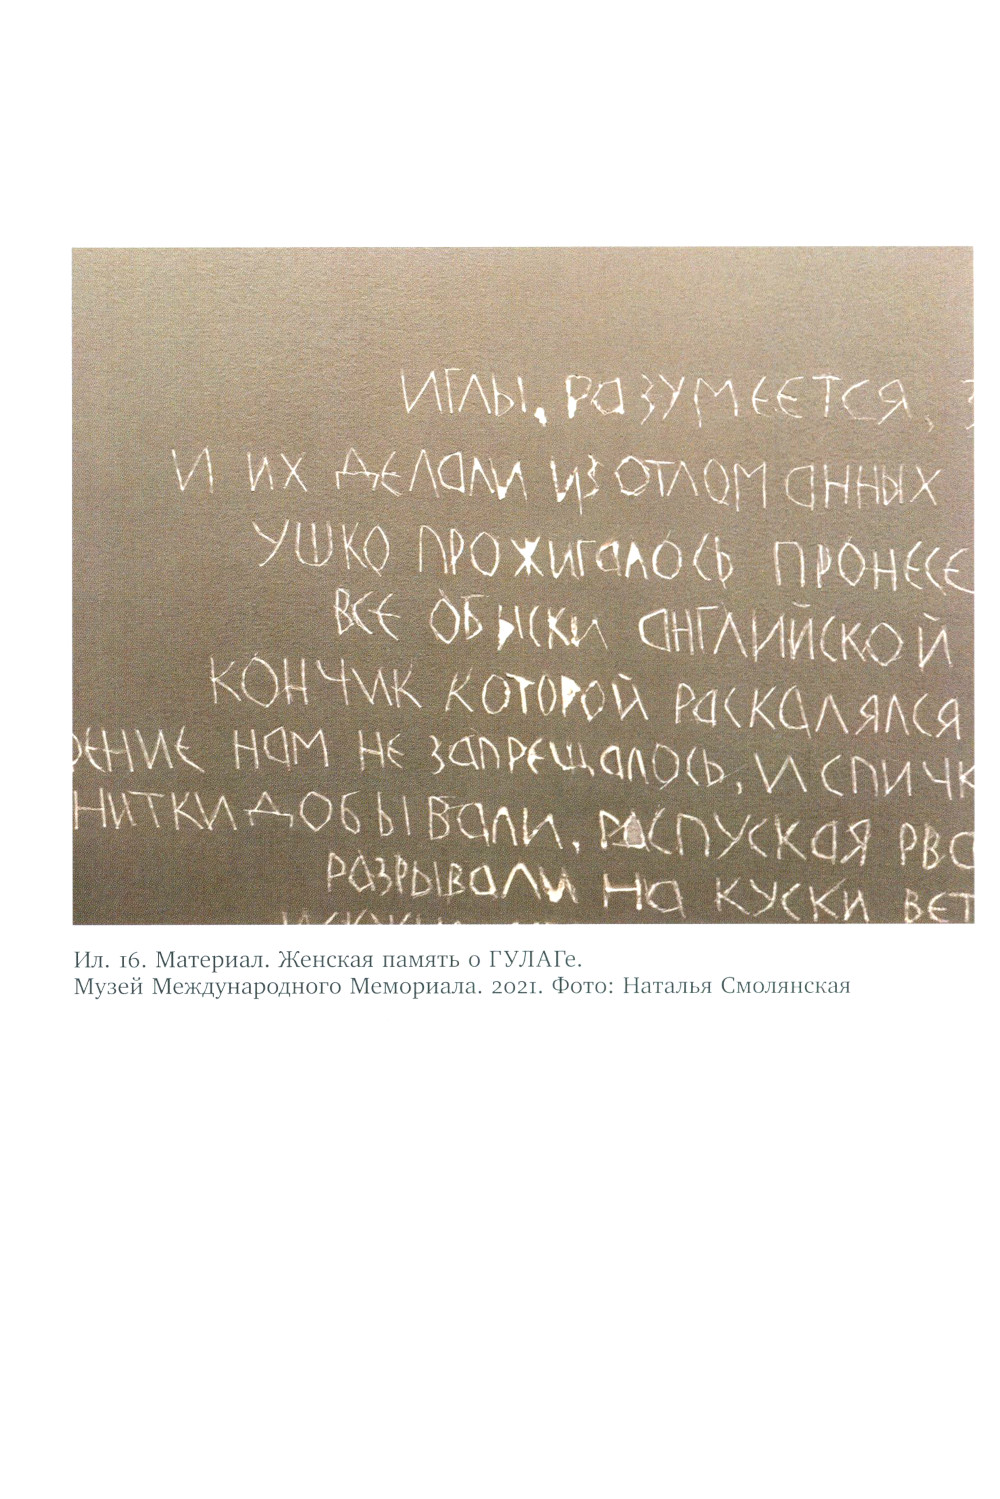 ИГЛЫ, РАЗУМЕЕТСЯ,
И ИХ ДЕЛАЛИ ИЗ ОТЛОМАННЫХ
УШКО ПРОЖИГАЛОСЬ ПРОНЕСЕ
ВСЕ ОБЫСКИ АНГЛИЙСКОЙ
КОНЧИК КОТОРОЙ РАСКАЛЯЛСЯ
РЕНИЕ НАМ НЕ ЗАПРЕЩАЛОСЬ, И СПИЧК
НИТКИ ДОБЫВАЛИ, РАСПУСКАЯ РВА
РАЗРЫВАЛИ НА КУСКИ ВЕТ
Ил. 16. Материал. Женская память о ГУЛАГе.
Музей Международного Мемориала. 2021. Фото: Наталья Смолянская